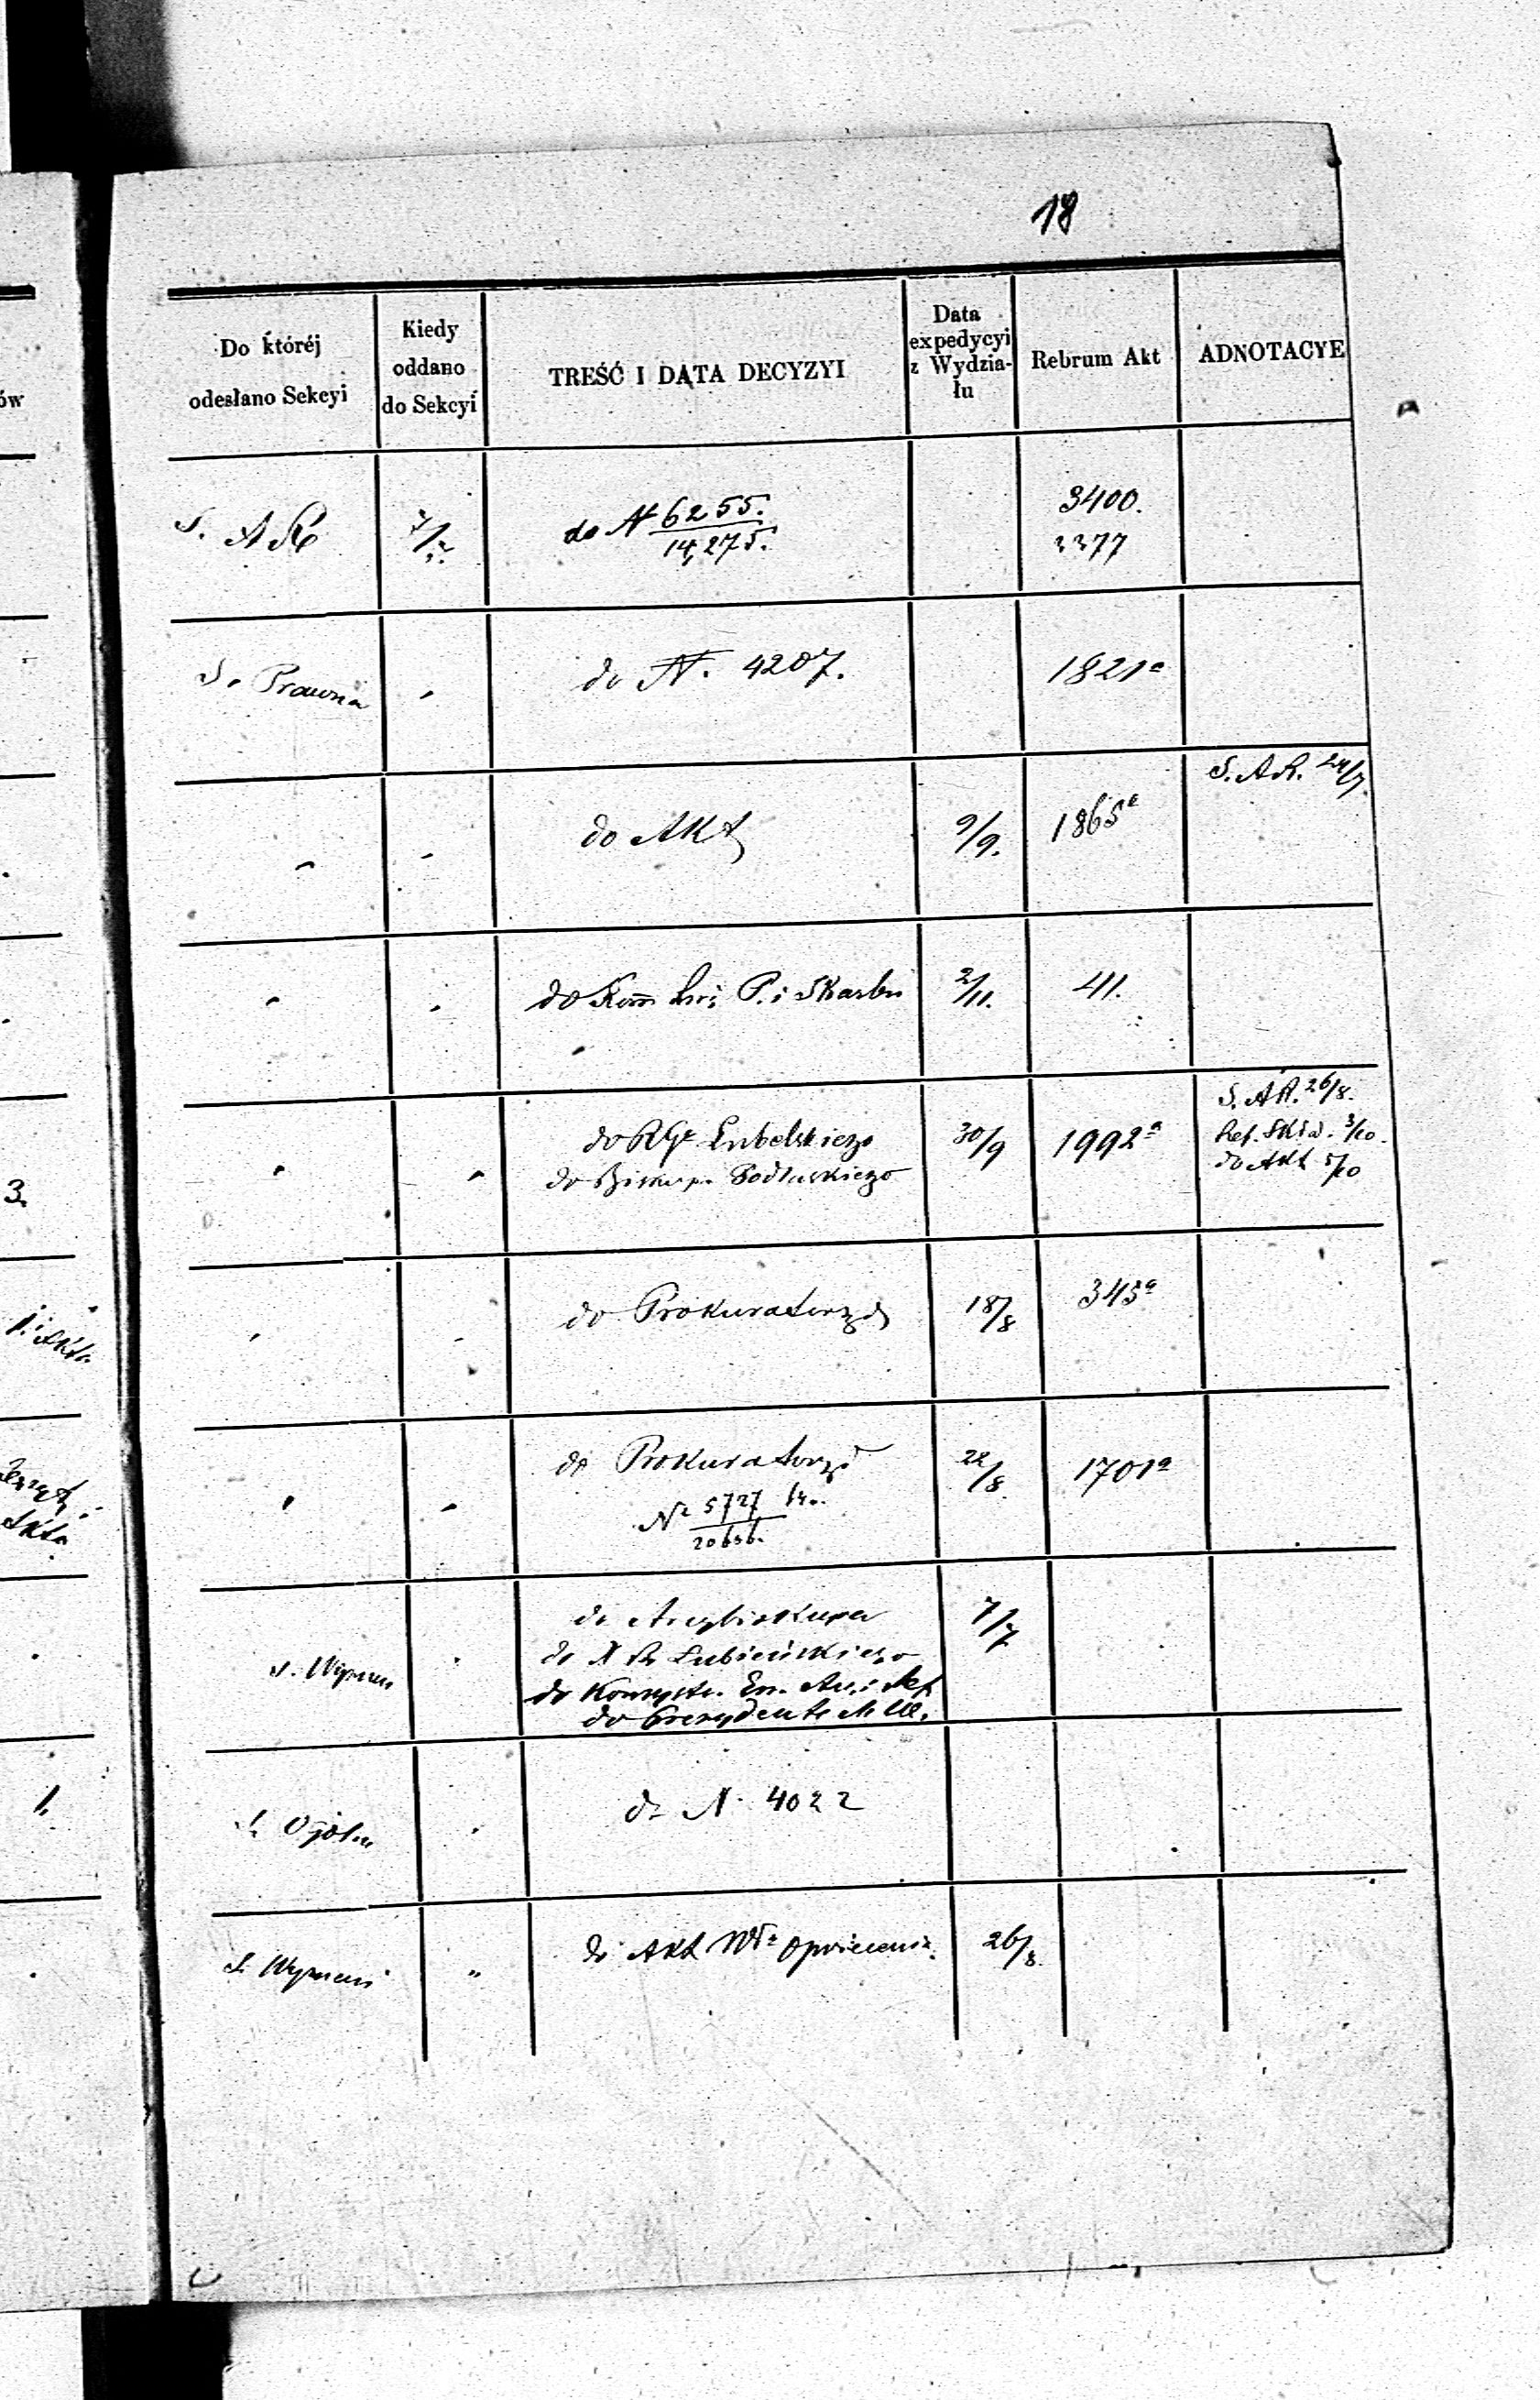 18
Do któréj odesłano Sekcyi
Kiedy oddano do Sekcyi
TREŚĆ I DATA DECYZYI
Data expedycyi z Wydziału
Rebrum Akt
ADNOTACYE
S. AR
do N 6255.
14,275.
3400.
3377
S. Prawna
do N. 4207.
1821a
do Akt
9/9.
1865a
S. AR. 24/7.
do Kom P. i Skarbu
2/11.
411.
do RGu Lubelskiego
do Biskupa Podlaskiego
30/9
1992a
S. AR. 26/8.
Ref. Skła. 3/10.
do Akt 5/10
do Prokuratoryi
18/8
345a
do Prokuratoryi
No 5727
20656.
22/8
1701a
S. Wyznań
do Arcybiskupa
do X Lubieńskiego
do Konsyst. Ew. Au. i Ref
do Prezydenta M W.
7/7
S. Ogóln
do N. 4022
S. Wyznań
"
do Akt Wo Oświecenia
26/8.
3.
1.